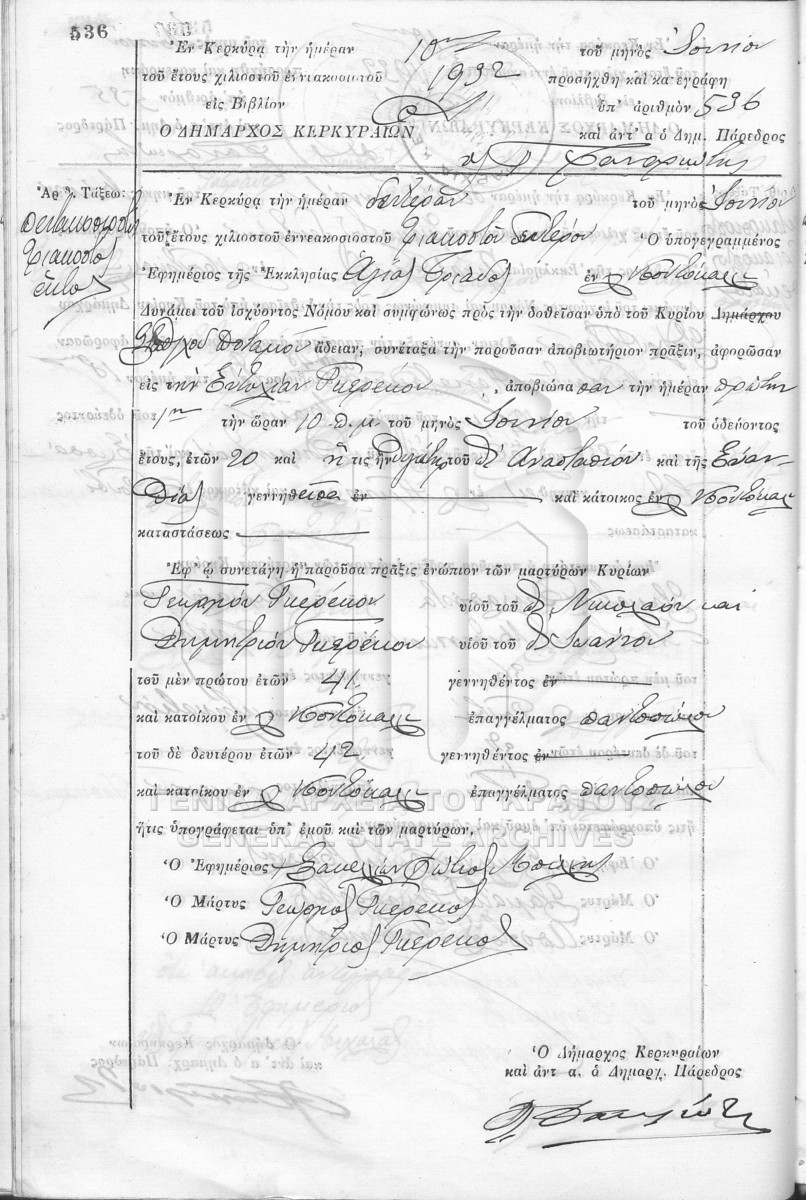 536
Ἐν Κερκύρᾳ τὴν ἡμέραν 10ην τοῦ μηνὸς Ἰουνίου
τοῦ ἔτους χιλιοστοῦ ἐννεακοσιοστοῦ 1932 προσήχθη καὶ κατεγράφη
εἰς Βιβλίον ὑπ' ἀριθμὸν 536
Ο ΔΗΜΑΡΧΟΣ ΚΕΡΚΥΡΑΙΩΝ καὶ ἀντ' α ὁ Δημ. Πάρεδρος
Ἀρ θ. Τάξεω:
πεντακοσιοστὸς
τριακοστὸς
ἕκτος
Ἐν Κερκύρᾳ τὴν ἡμέραν δευτέραν τοῦ μηνὸς Ἰουνίου
τοῦ ἔτους χιλιοστοῦ ἐννεακοσιοστοῦ τριακοστοῦ δευτέρου Ὁ ὑπογεγραμμένος
Ἐφημέριος τῆς Ἐκκλησίας Ἁγίας Τριάδος ἐν Κοντόκαλι
Δυνάμει τοῦ ἰσχύοντος Νόμου καὶ συμφώνως πρὸς τὴν δοθεῖσαν ὑπὸ τοῦ Κυρίου Δημάρχου
Ποταμοῦ ἄδειαν, συνέταξα τὴν παροῦσαν ἀποβιωτήριον πρᾶξιν, ἀφορῶσαν
εἰς τὴν Εὐτυχίαν Γκερέκου, ἀποβιώσασαν τὴν ἡμέραν πρώτην
1ην τὴν ὥραν 10 π.μ. τοῦ μηνὸς Ἰουνίου τοῦ ὁδεύοντος
ἔτους, ἐτῶν 20 καὶ ἥτις ἦν θυγάτηρ τοῦ Ἀναστασίου καὶ τῆς Εὐαν-
θίας γεννηθεῖσα ἐν καὶ κάτοικος ἐν Κοντόκαλι
καταστάσεως
Ἐφ' ᾧ συνετάγη ἡ παροῦσα πρᾶξις ἐνώπιον τῶν μαρτύρων Κυρίων
Γεωργίου Γκερέκου υἱοῦ τοῦ Νικολάου καὶ
Δημητρίου Γκερέκου υἱοῦ τοῦ Ἰωάννου
τοῦ μὲν πρώτου ἐτῶν 41 γεννηθέντος ἐν
καὶ κατοίκου ἐν Κοντόκαλι ἐπαγγέλματος παντοπώλου
τοῦ δὲ δευτέρου ἐτῶν 42 γεννηθέντος ἐν
καὶ κατοίκου ἐν Κοντόκαλι ἐπαγγέλματος παντοπώλου
ΓΕΝΙΚΑ ΑΡΧΕΙΑ ΤΟΥ ΚΡΑΤΟΥΣ
ἥτις ὑπογράφεται ὑπ' ἐμοῦ καὶ τῶν μαρτύρων,
GENERAL STATE ARCHIVES
Ὁ Ἐφημέριος Φώτιος
Ὁ Μάρτυς Γεώργιος Γκερέκος
Ὁ Μάρτυς Δημήτριος Γκερέκος
Ὁ Δήμαρχος Κερκυραίων
καὶ ἀντ α. ὁ Δημαρχ. Πάρεδρος